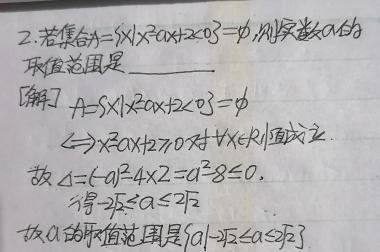 2.若集合A={x|x²-ax+2<0}=∅,则实数a的
取值范围是________
[解] A={x|x²-ax+2<0}=∅
⟺x²-ax+2≥0对∀x∈R恒成立.
故△=(-a)²-4×2=a²-8≤0,
得-2√2≤a≤2√2
故a的取值范围是{a|-2√2≤a≤2√2}